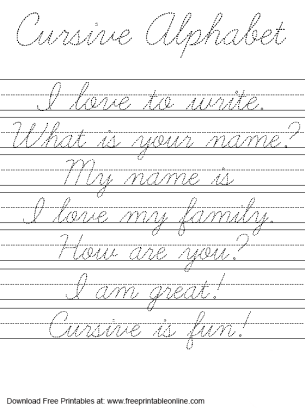 Cursive Alphabet
I love to write.
What is your name?
My name is
I love my family.
How are you?
I am great!
Cursive is fun!
Download Free Printables at: www.freeprintableonline.com